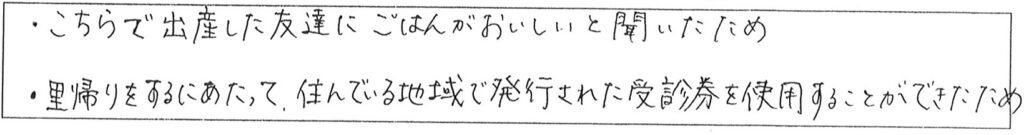 ・こちらで出産した友達にごはんがおいしいと聞いたため
・里帰りをするにあたって、住んでいる地域で発行された受診券を使用することができたため